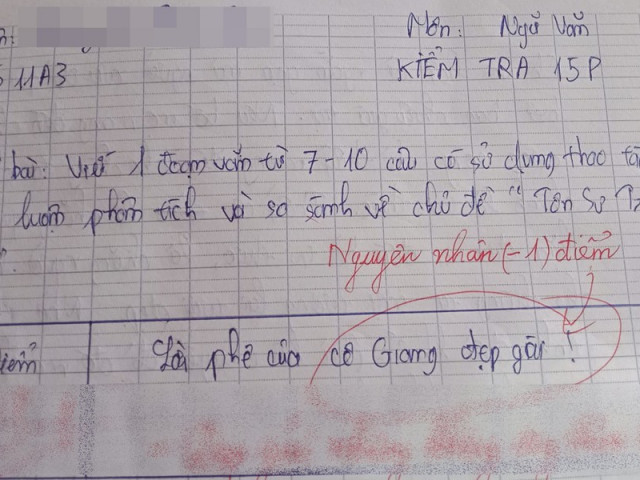 Môn: Ngữ Văn
11A3
KIỂM TRA 15P
bài: Viết 1 đoạn văn từ 7-10 câu có sử dụng thao tá
luận phân tích và so sánh về chủ đề "Tôn Sư Tr
Nguyên nhân (-1) điểm
iểm
Lời phê của cô Giang đẹp gái !